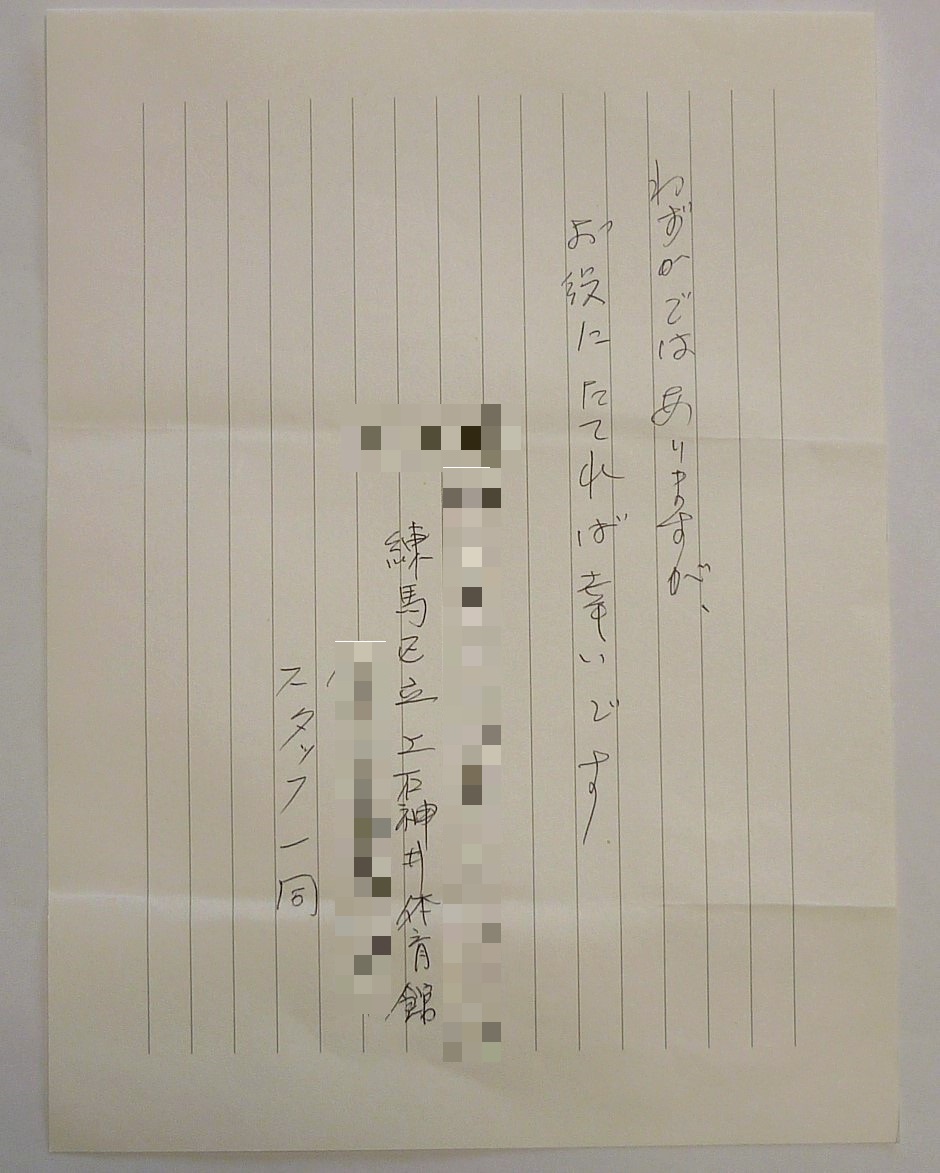 わずかではありますが、
お役にたてれば幸いです
練馬区立上石神井体育館
スタッフ一同